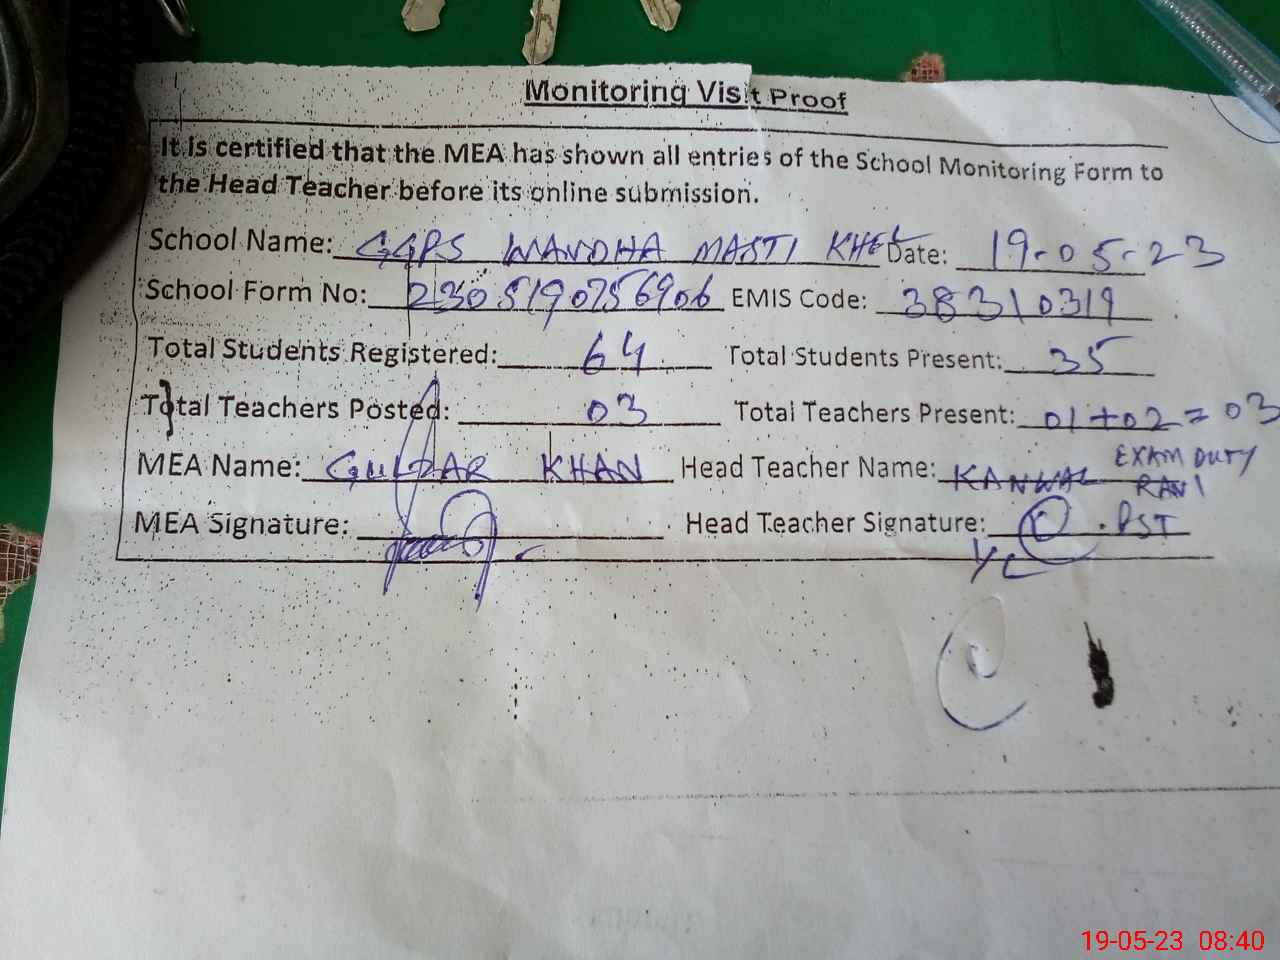 Monitoring Visit Proof
It is certified that the MEA has shown all entries of the School Monitoring Form to
the Head Teacher before its online submission.
School Name: GGPS WANDHA MASTI KHEL Date: 19-05-23
School Form No: 2305190756906 EMIS Code: 38310319
Total Students Registered: 64 Total Students Present: 35
Total Teachers Posted: 03 Total Teachers Present: 01+02=03
EXAM DUTY
MEA Name: GULDAR KHAN Head Teacher Name: KANWAL RANI
MEA Signature: Head Teacher Signature: PST
19-05-23 08:40